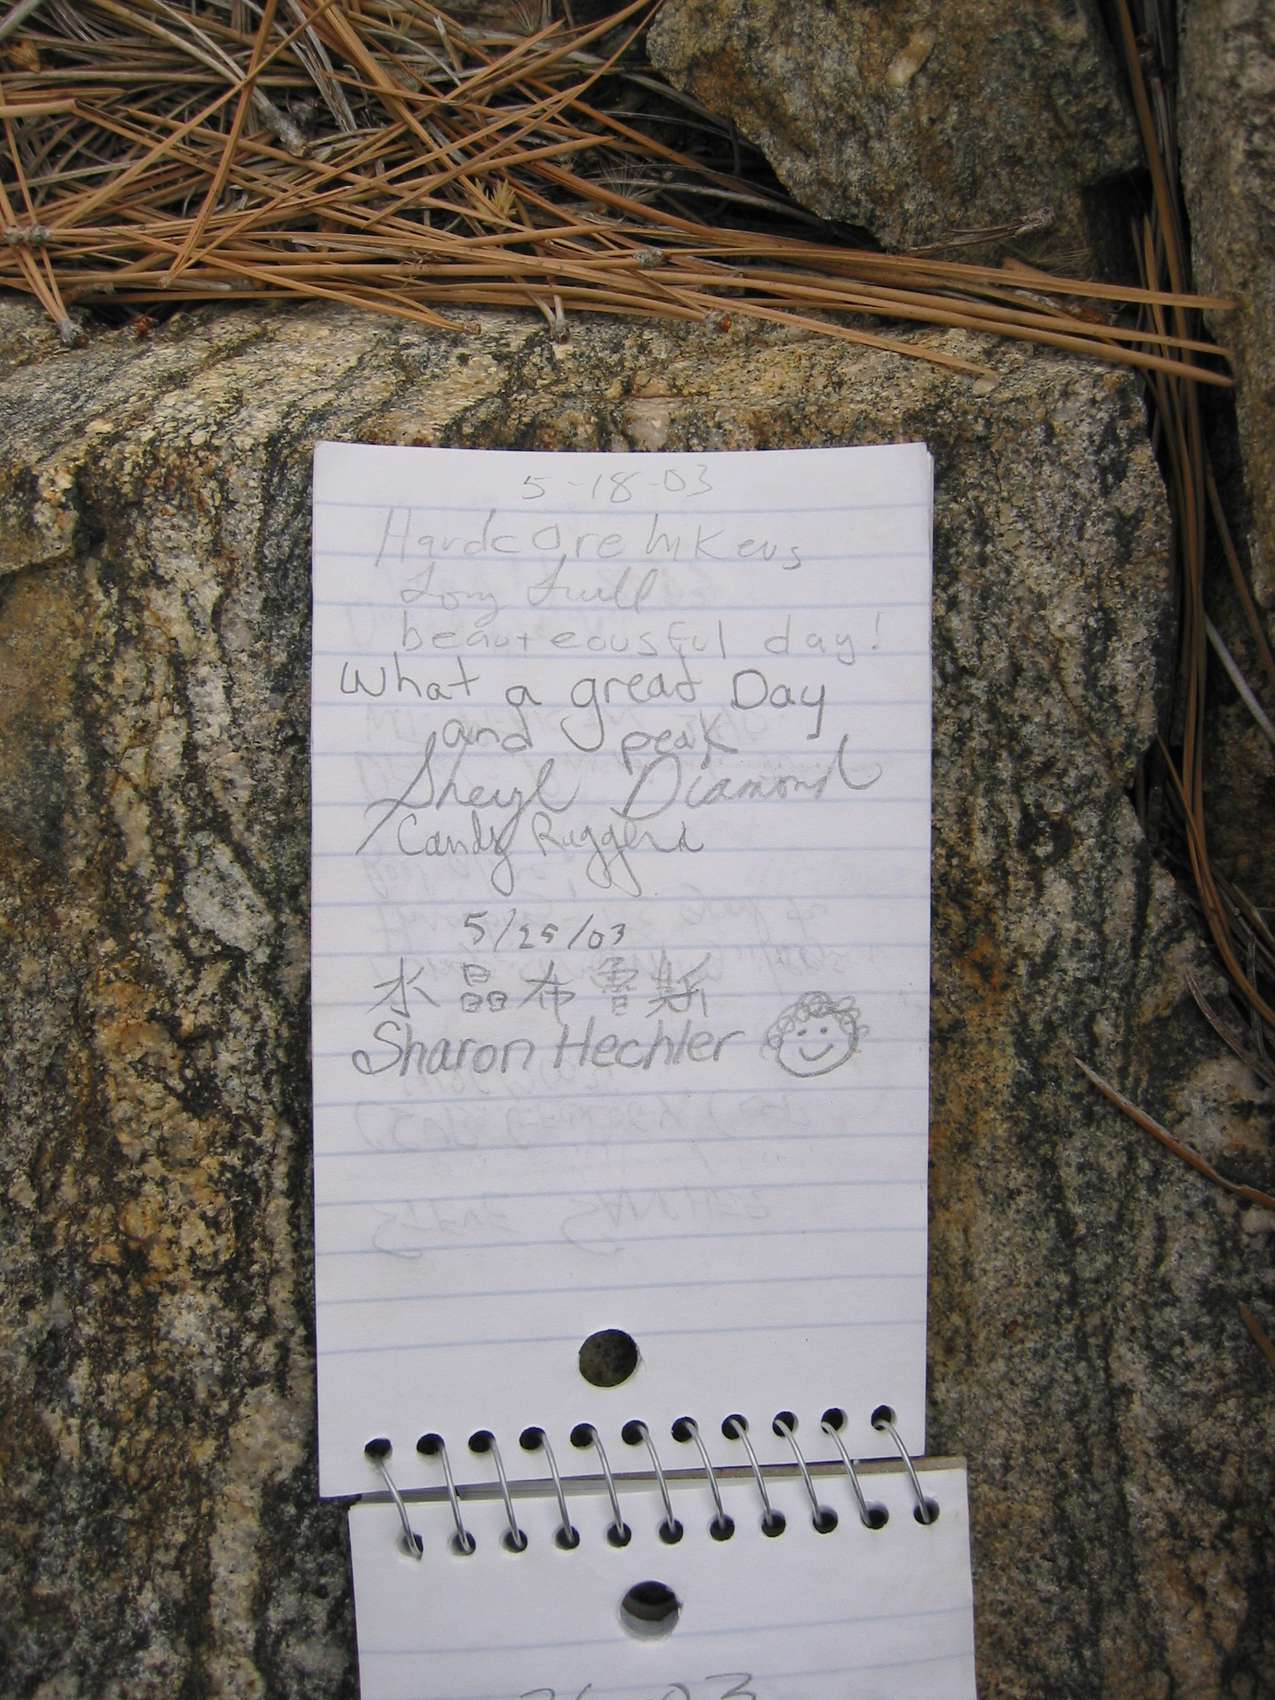 5-18-03
Hardcore hikers
Tony
beauteousful day!
What a great Day
and peak
Sheryl Diamond
Candy Ruggera
5/25/03
水晶布魯斯
Sharon Hechler
-03